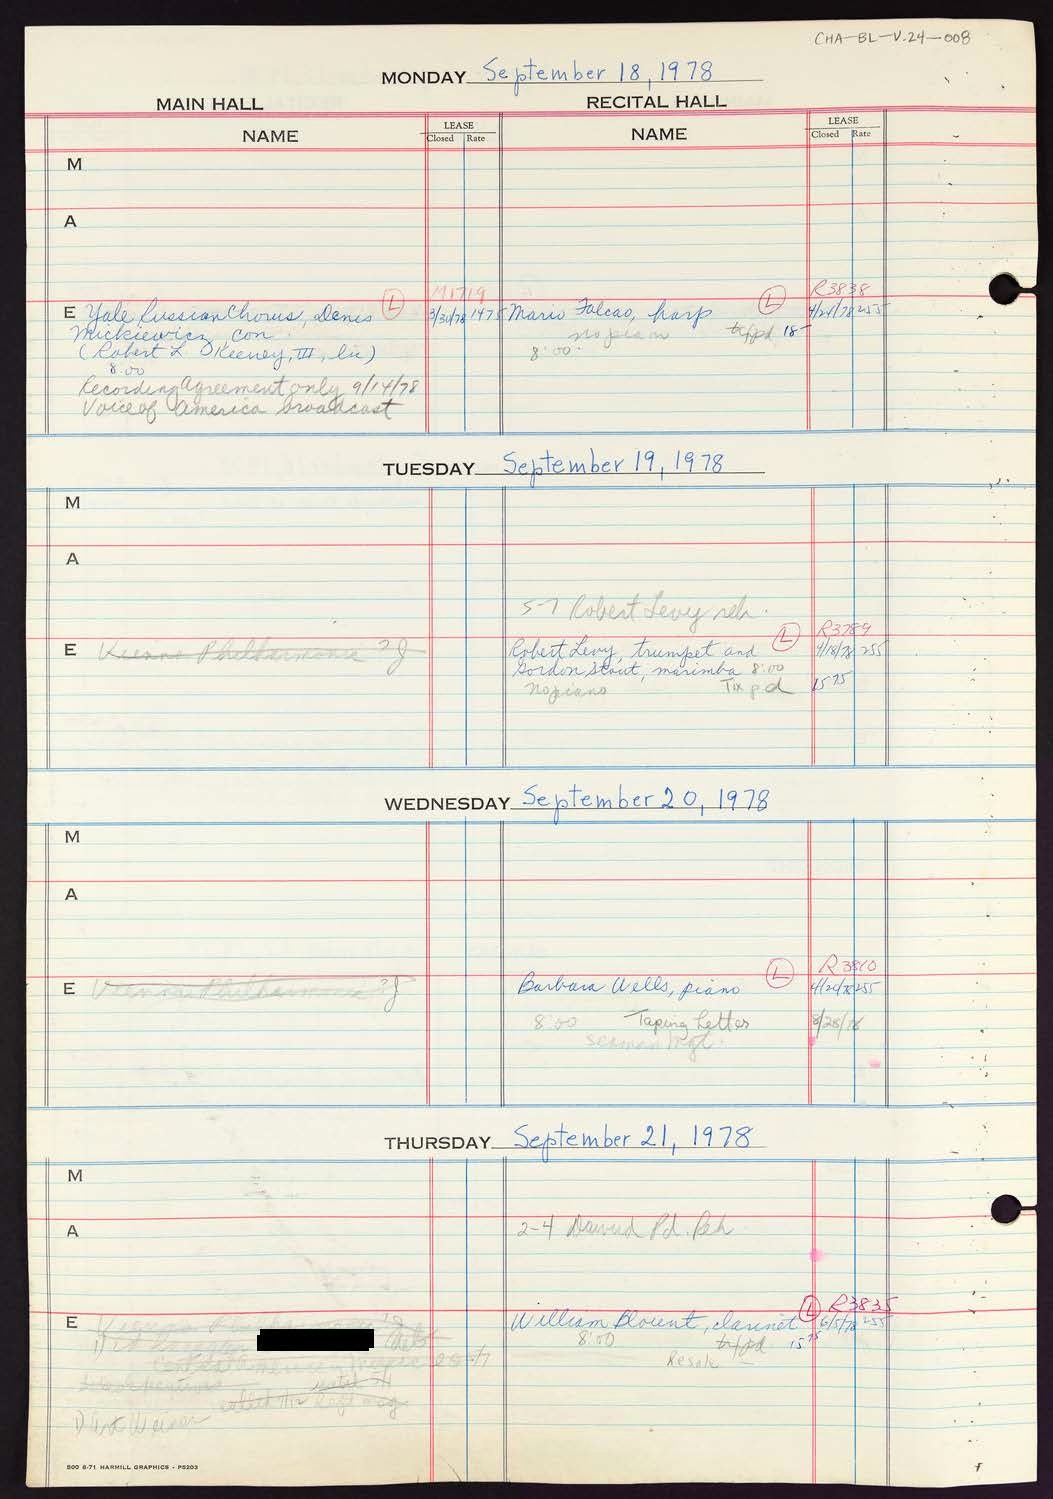 CHA-BL-V.24-008
MONDAY September 18, 1978
MAIN HALL RECITAL HALL
NAME LEASE Closed Rate NAME LEASE Closed Rate
M
A
M1719 R3838
E Yale Russian Chorus, Denis (L) 3/31/78 1475 Mario Falcao, harp (L) 4/24/78 255
Mickiewicz, con. no piano 18-
(Robert L. O'Keeney, III, lic) 8:00
8:00
Recording Agreement only 9/14/78
Voice of America broadcast
TUESDAY September 19, 1978
M
A
5-7 Robert Levy reh.
R3789
E Vienna Philharmonic ? J Robert Levy, trumpet and (L) 4/18/78 255
Gordon Stout, marimba 8:00
no piano Tix pd 15 75
WEDNESDAY September 20, 1978
M
A
R3810
E Vienna Philharmonic ? J Barbara Wells, piano (L) 4/20/78 255
8:00 Taping Letter 8/28/78
Mgt.
THURSDAY September 21, 1978
M
A 2-4 Pd. Reh
R3835
E William Blount, clarinet (L) 6/5/78 255
8:00 15 75
Resale
500 8-71 HARMILL GRAPHICS - P5203